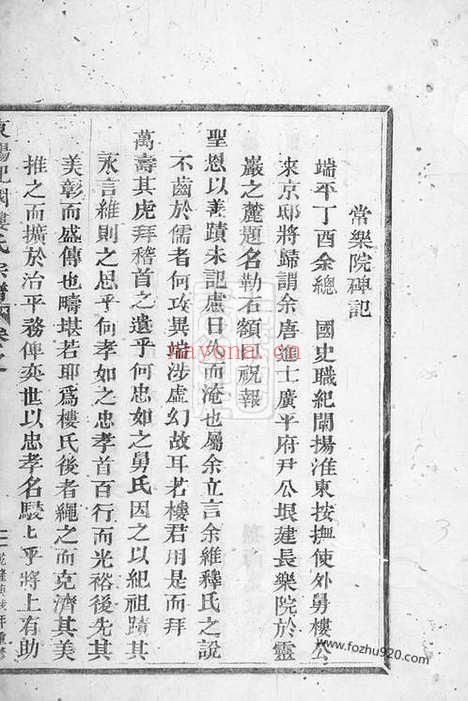 常樂院碑記
端平丁酉余總 國史職紀闡揚淮東按撫使外舅樓公
來京邸將歸謂余唐進士廣平府尹公垠建長樂院於靈
巖之麓題名勒石額上祝報
聖恩以善蹟未記慮日久而淹也屬余立言余維釋氏之說
不齒於儒者何攻異端涉虛幻故耳若樓君用是而拜
萬壽其虎拜稽首之遺乎何忠如之舅氏因之以紀祖蹟其
永言維則之思乎何孝如之忠孝首百行而光裕後先其
美彰而盛傳也疇堪若耶爲樓氏後者繩之而克濟其美
推之而擴於治平務俾奕世以忠孝名駿上乎將上有助
氏宗譜
nayona.cn
www.fozhu920.com